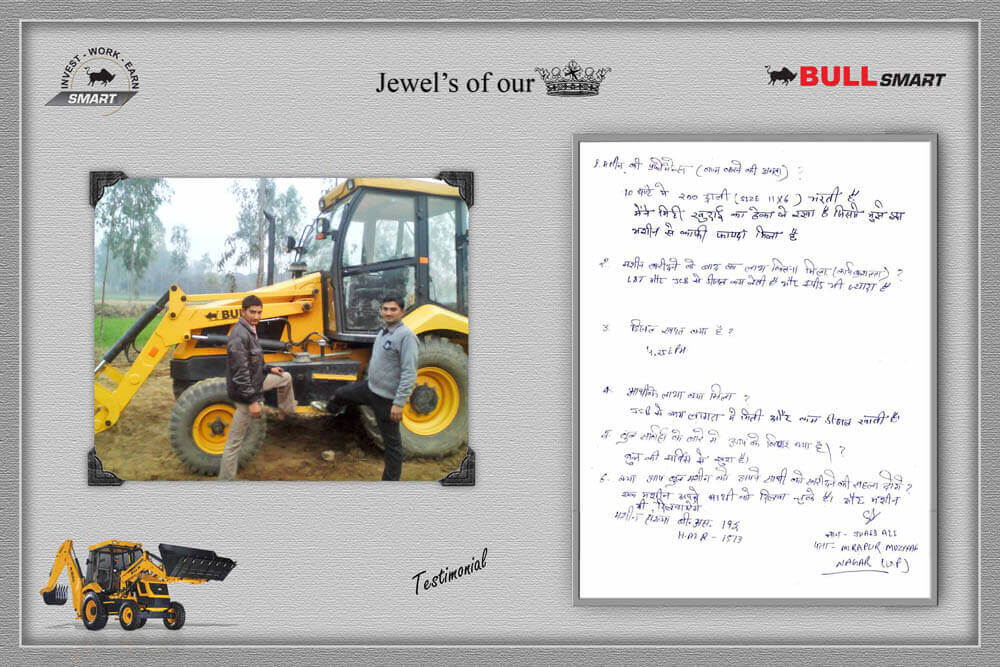 INVEST - WORK - EARN
SMART
Jewel's of our
BULL SMART
BULL
१. मशीन की (काम करने की क्षमता) ?
10 घंटे मे 200 ट्राली (SIZE 11X6) भरती है
मैंने मिट्टी खुदाई का ठेका ले रखा है जिसमे मुझे इस
मशीन से काफी फायदा मिला है
२. मशीन खरीदने के बाद क्या लाभ मिला ?
L&T और JCB से डीजल कम लेती है और स्पीड भी ज्यादा है
३. डीजल खपत क्या है ?
4. आर्थिक लाभ क्या मिला ?
JCB से कम लागत मे मिली और कम डीजल खाती है।
५. बुल सर्विस के बारे मे आप के विचार क्या है ?
बुल की सर्विस से खुश है।
6. क्या आप बुल मशीन को अपने साथी को खरीदने की सलाह दोगे ?
एक मशीन अपने साथी को दिलवा चुके है। और मशीन
भी दिलवायेंगे
मशीन
H.M.R - 1573
नाम -
पता - MIRAPUR MUZAFFAR
NAGAR (U.P)
Testimonial